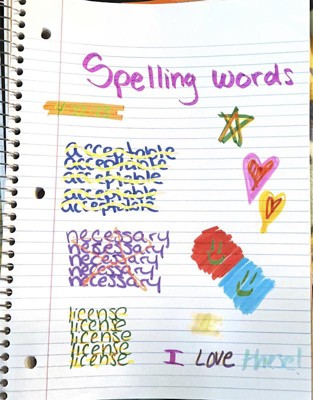 Spelling words
acceptable
acceptable
acceptable
acceptable
acceptable
necessary
necessary
necessary
necessary
necessary
license
license
license
license
license
I LOVE these!